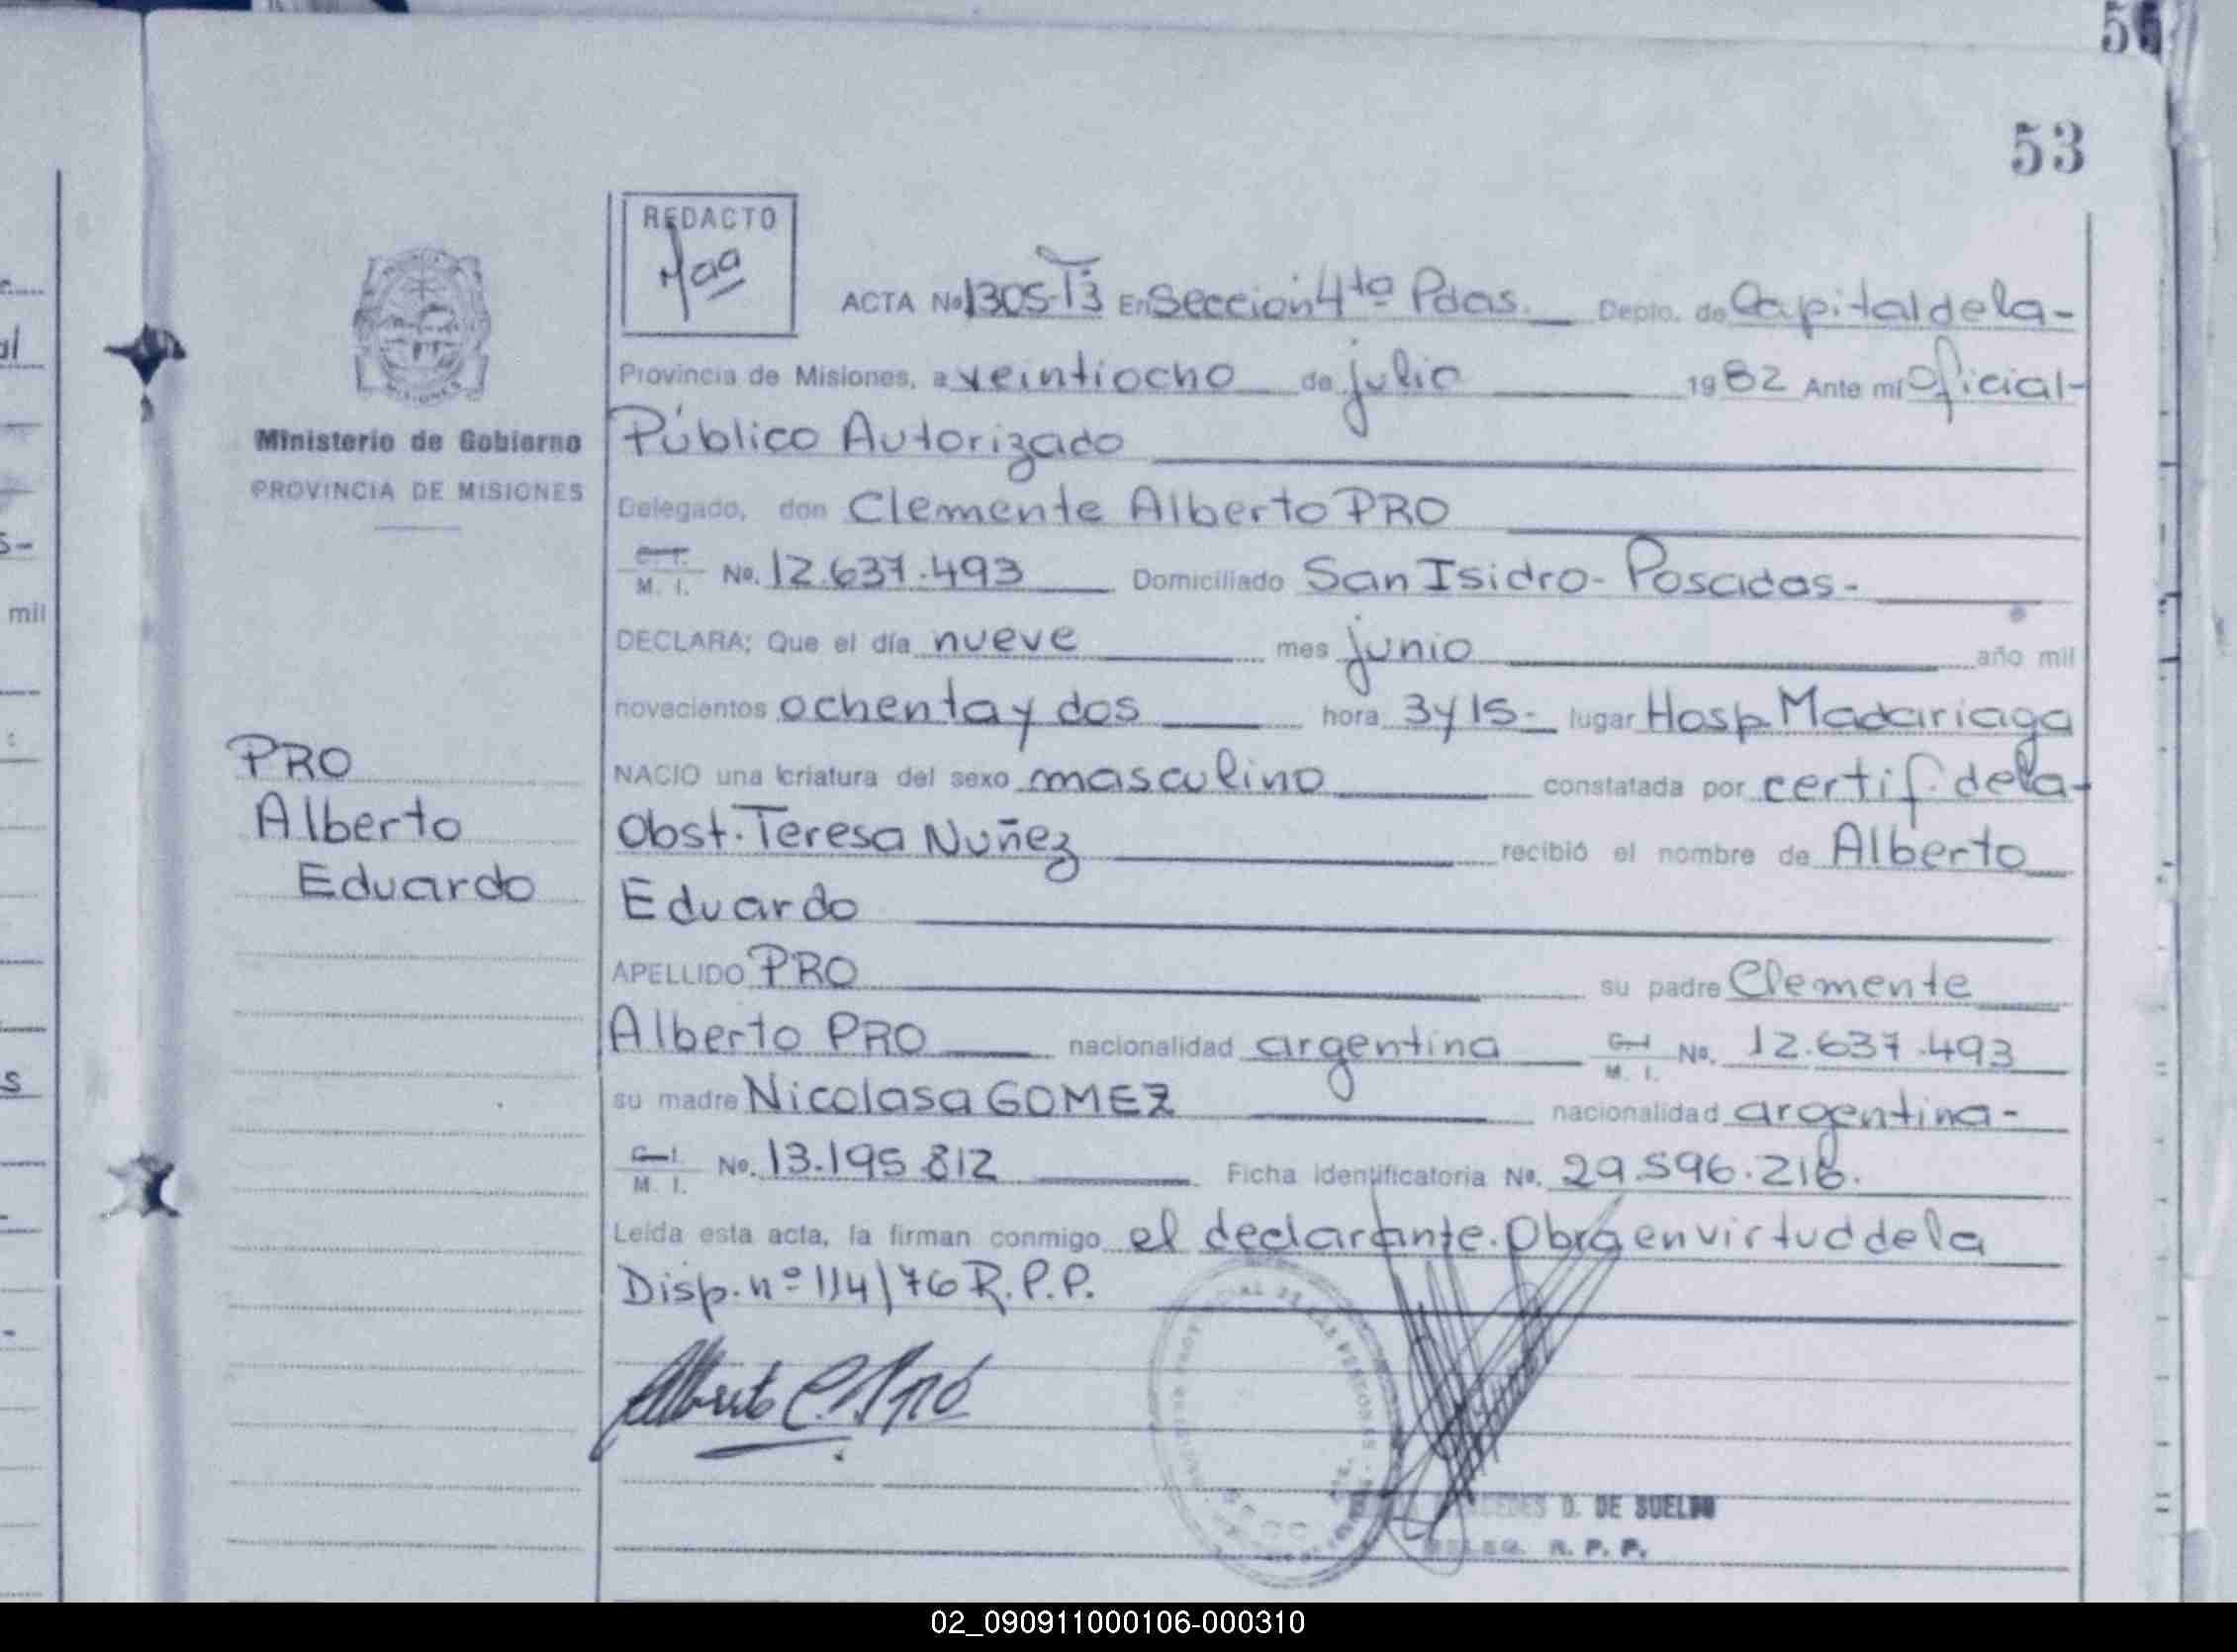 56
53
REDACTO
ACTA No 1305-T3 En Sección 4ta Pdas. Depto. de Capital de la-
Provincia de Misiones, a veintiocho de julio 1982 Ante mí Oficial-
Ministerio de Gobierno
PROVINCIA DE MISIONES
Público Autorizado
Delegado, don Clemente Alberto PRO
M. I. No. 12.637.493 Domiciliado San Isidro- Posadas-
DECLARA; Que el día nueve mes junio año mil
novecientos ochenta y dos hora 3 y 15- lugar Hosp. Madariaga
NACIO una criatura del sexo masculino constatada por certif. de la-
Obst. Teresa Nuñez recibió el nombre de Alberto
Eduardo
PRO
Alberto
Eduardo
APELLIDO PRO su padre Clemente
Alberto PRO nacionalidad argentina M. I. No. 12.637.493
su madre Nicolasa GOMEZ nacionalidad argentina-
M. I. No. 13.195.812 Ficha identificatoria No. 29.596.216.
Leída esta acta, la firman conmigo el declarante. Obra en virtud de la
Disp. nº 114/76 R.P.P.
D. DE SUELDO
R. P. P.
mil
02_090911000106-000310